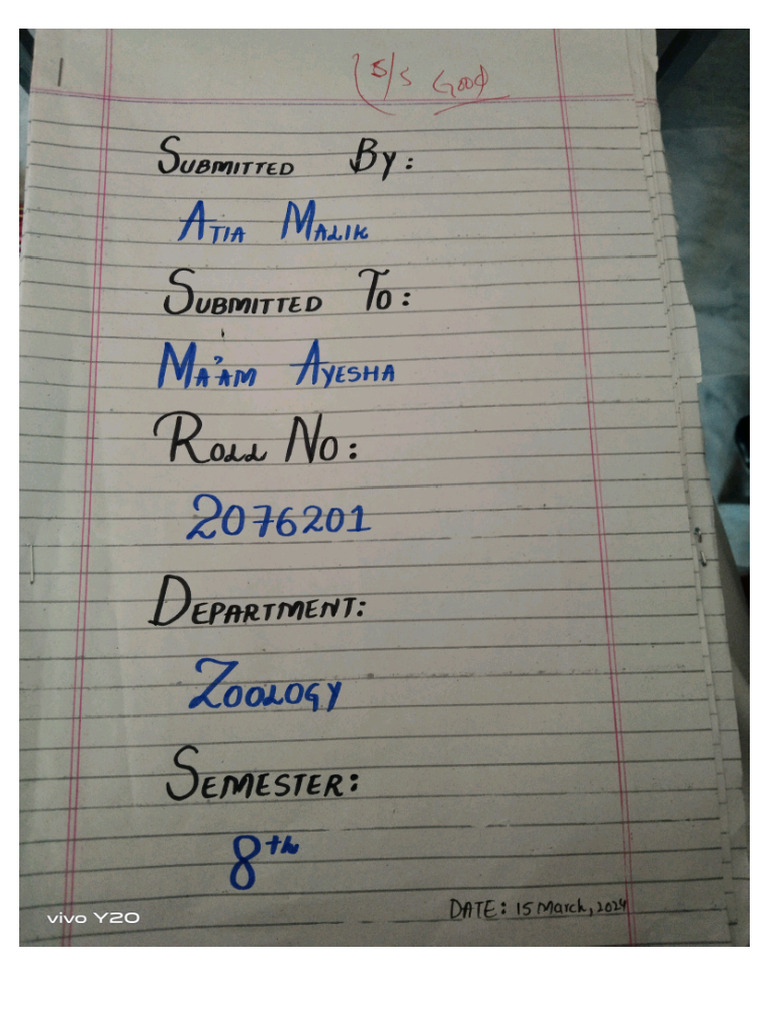 5/5 Good
SUBMITTED BY:
ATIA MALIK
SUBMITTED TO:
MA'AM AYESHA
ROLL NO:
2076201
DEPARTMENT:
ZOOLOGY
SEMESTER:
8th
DATE: 15 March, 2024
vivo Y20